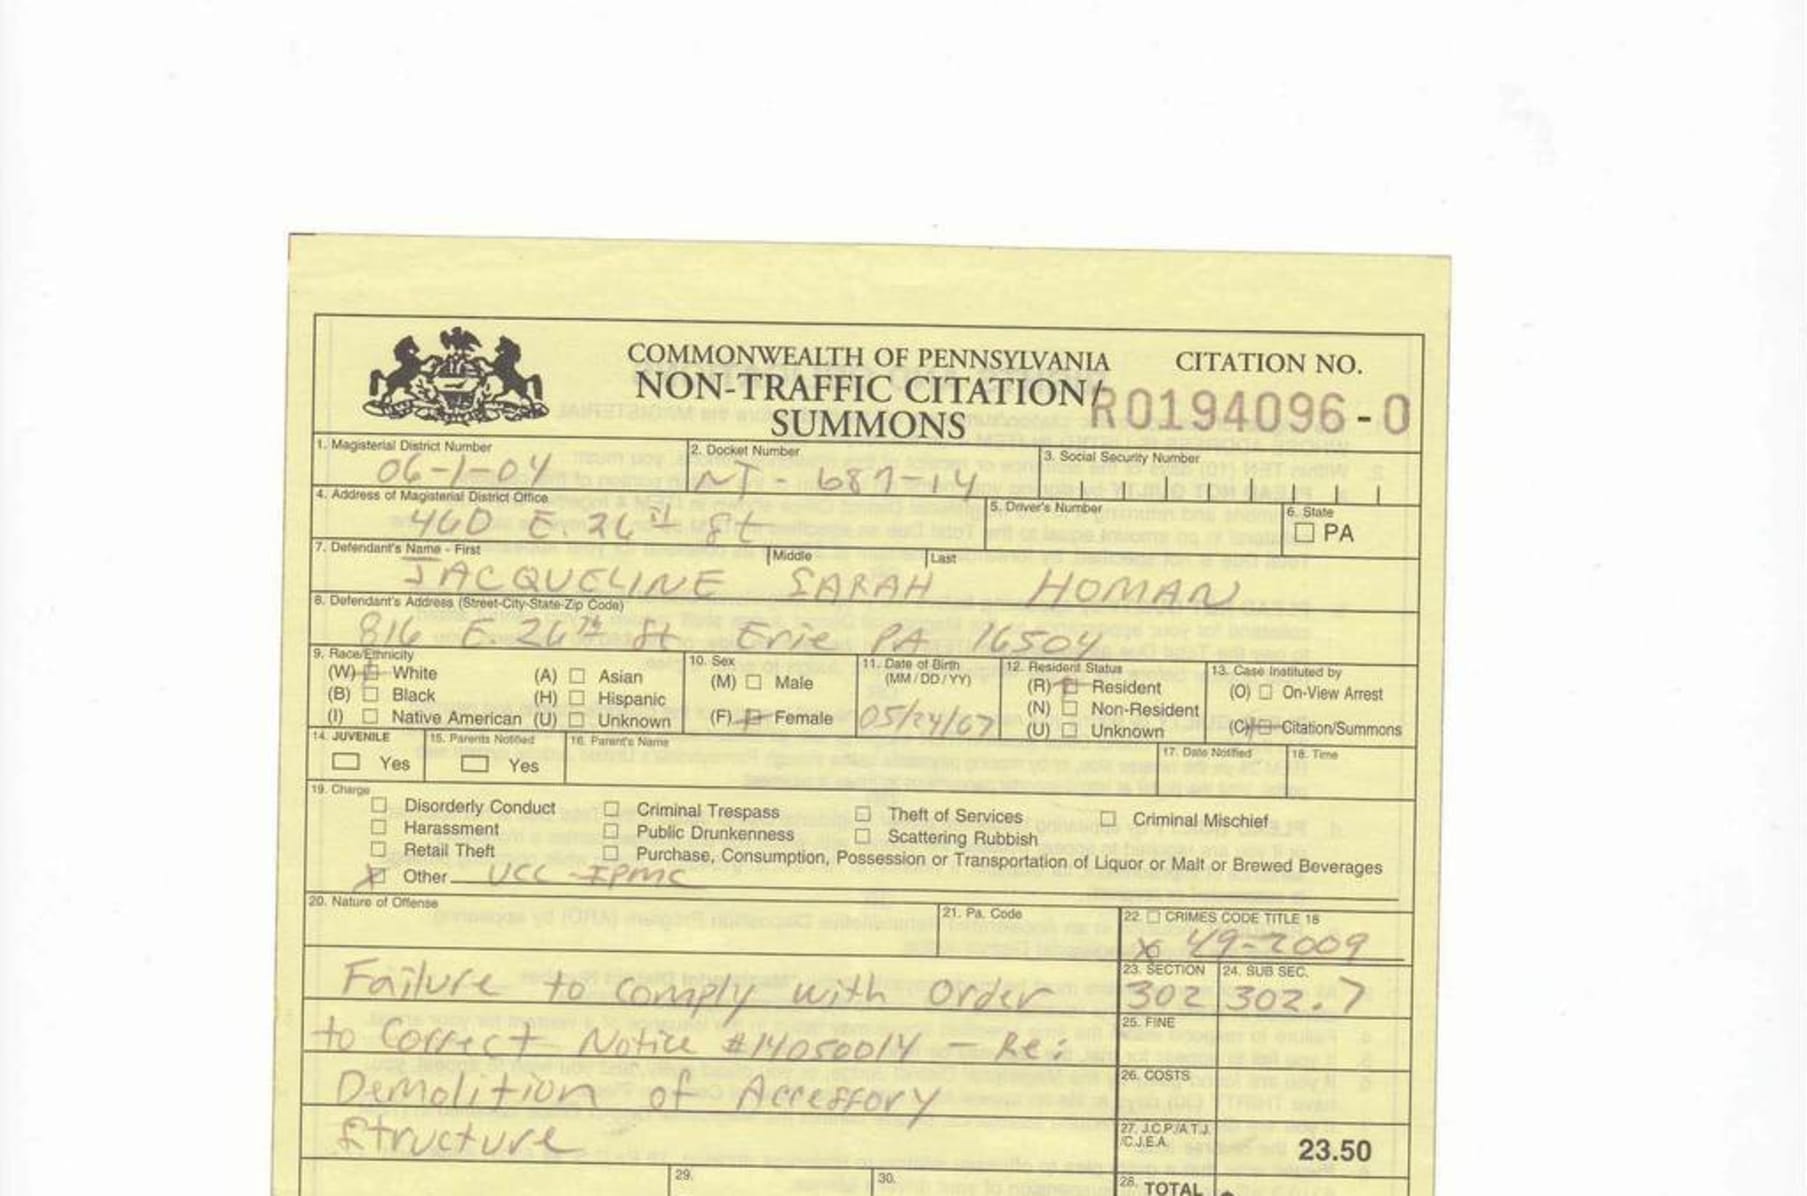 COMMONWEALTH OF PENNSYLVANIA CITATION NO.
NON-TRAFFIC CITATION/
SUMMONS R0194096-0
1. Magisterial District Number 2. Docket Number 3. Social Security Number
06-1-04 NT-687-14
4. Address of Magisterial District Office 5. Driver's Number 6. State
460 E. 26th St ☐ PA
7. Defendant's Name - First Middle Last
JACQUELINE SARAH HOMAN
8. Defendant's Address (Street-City-State-Zip Code)
816 E. 26th St Erie PA 16504
9. Race/Ethnicity 10. Sex 11. Date of Birth 12. Resident Status 13. Case Instituted by
(W) White (A) ☐ Asian (M) ☐ Male (MM/DD/YY) (R) Resident (O) ☐ On-View Arrest
(B) ☐ Black (H) ☐ Hispanic (N) ☐ Non-Resident
(I) ☐ Native American (U) ☐ Unknown (F) Female 05/24/67 (U) ☐ Unknown (C) Citation/Summons
14. JUVENILE 15. Parents Notified 16. Parent's Name 17. Date Notified 18. Time
☐ Yes ☐ Yes
19. Charge
☐ Disorderly Conduct ☐ Criminal Trespass ☐ Theft of Services ☐ Criminal Mischief
☐ Harassment ☐ Public Drunkenness ☐ Scattering Rubbish
☐ Retail Theft ☐ Purchase, Consumption, Possession or Transportation of Liquor or Malt or Brewed Beverages
X Other UCC-IPMC
20. Nature of Offense 21. Pa. Code 22. ☐ CRIMES CODE TITLE 18
X 49-2009
Failure to comply with Order 23. SECTION 24. SUB SEC.
302 302.7
to Correct Notice #14050014 - Re: 25. FINE
Demolition of Accessory 26. COSTS
Structure 27. J.C.P./A.T.J./C.J.E.A. 23.50
29. 30. 28. TOTAL